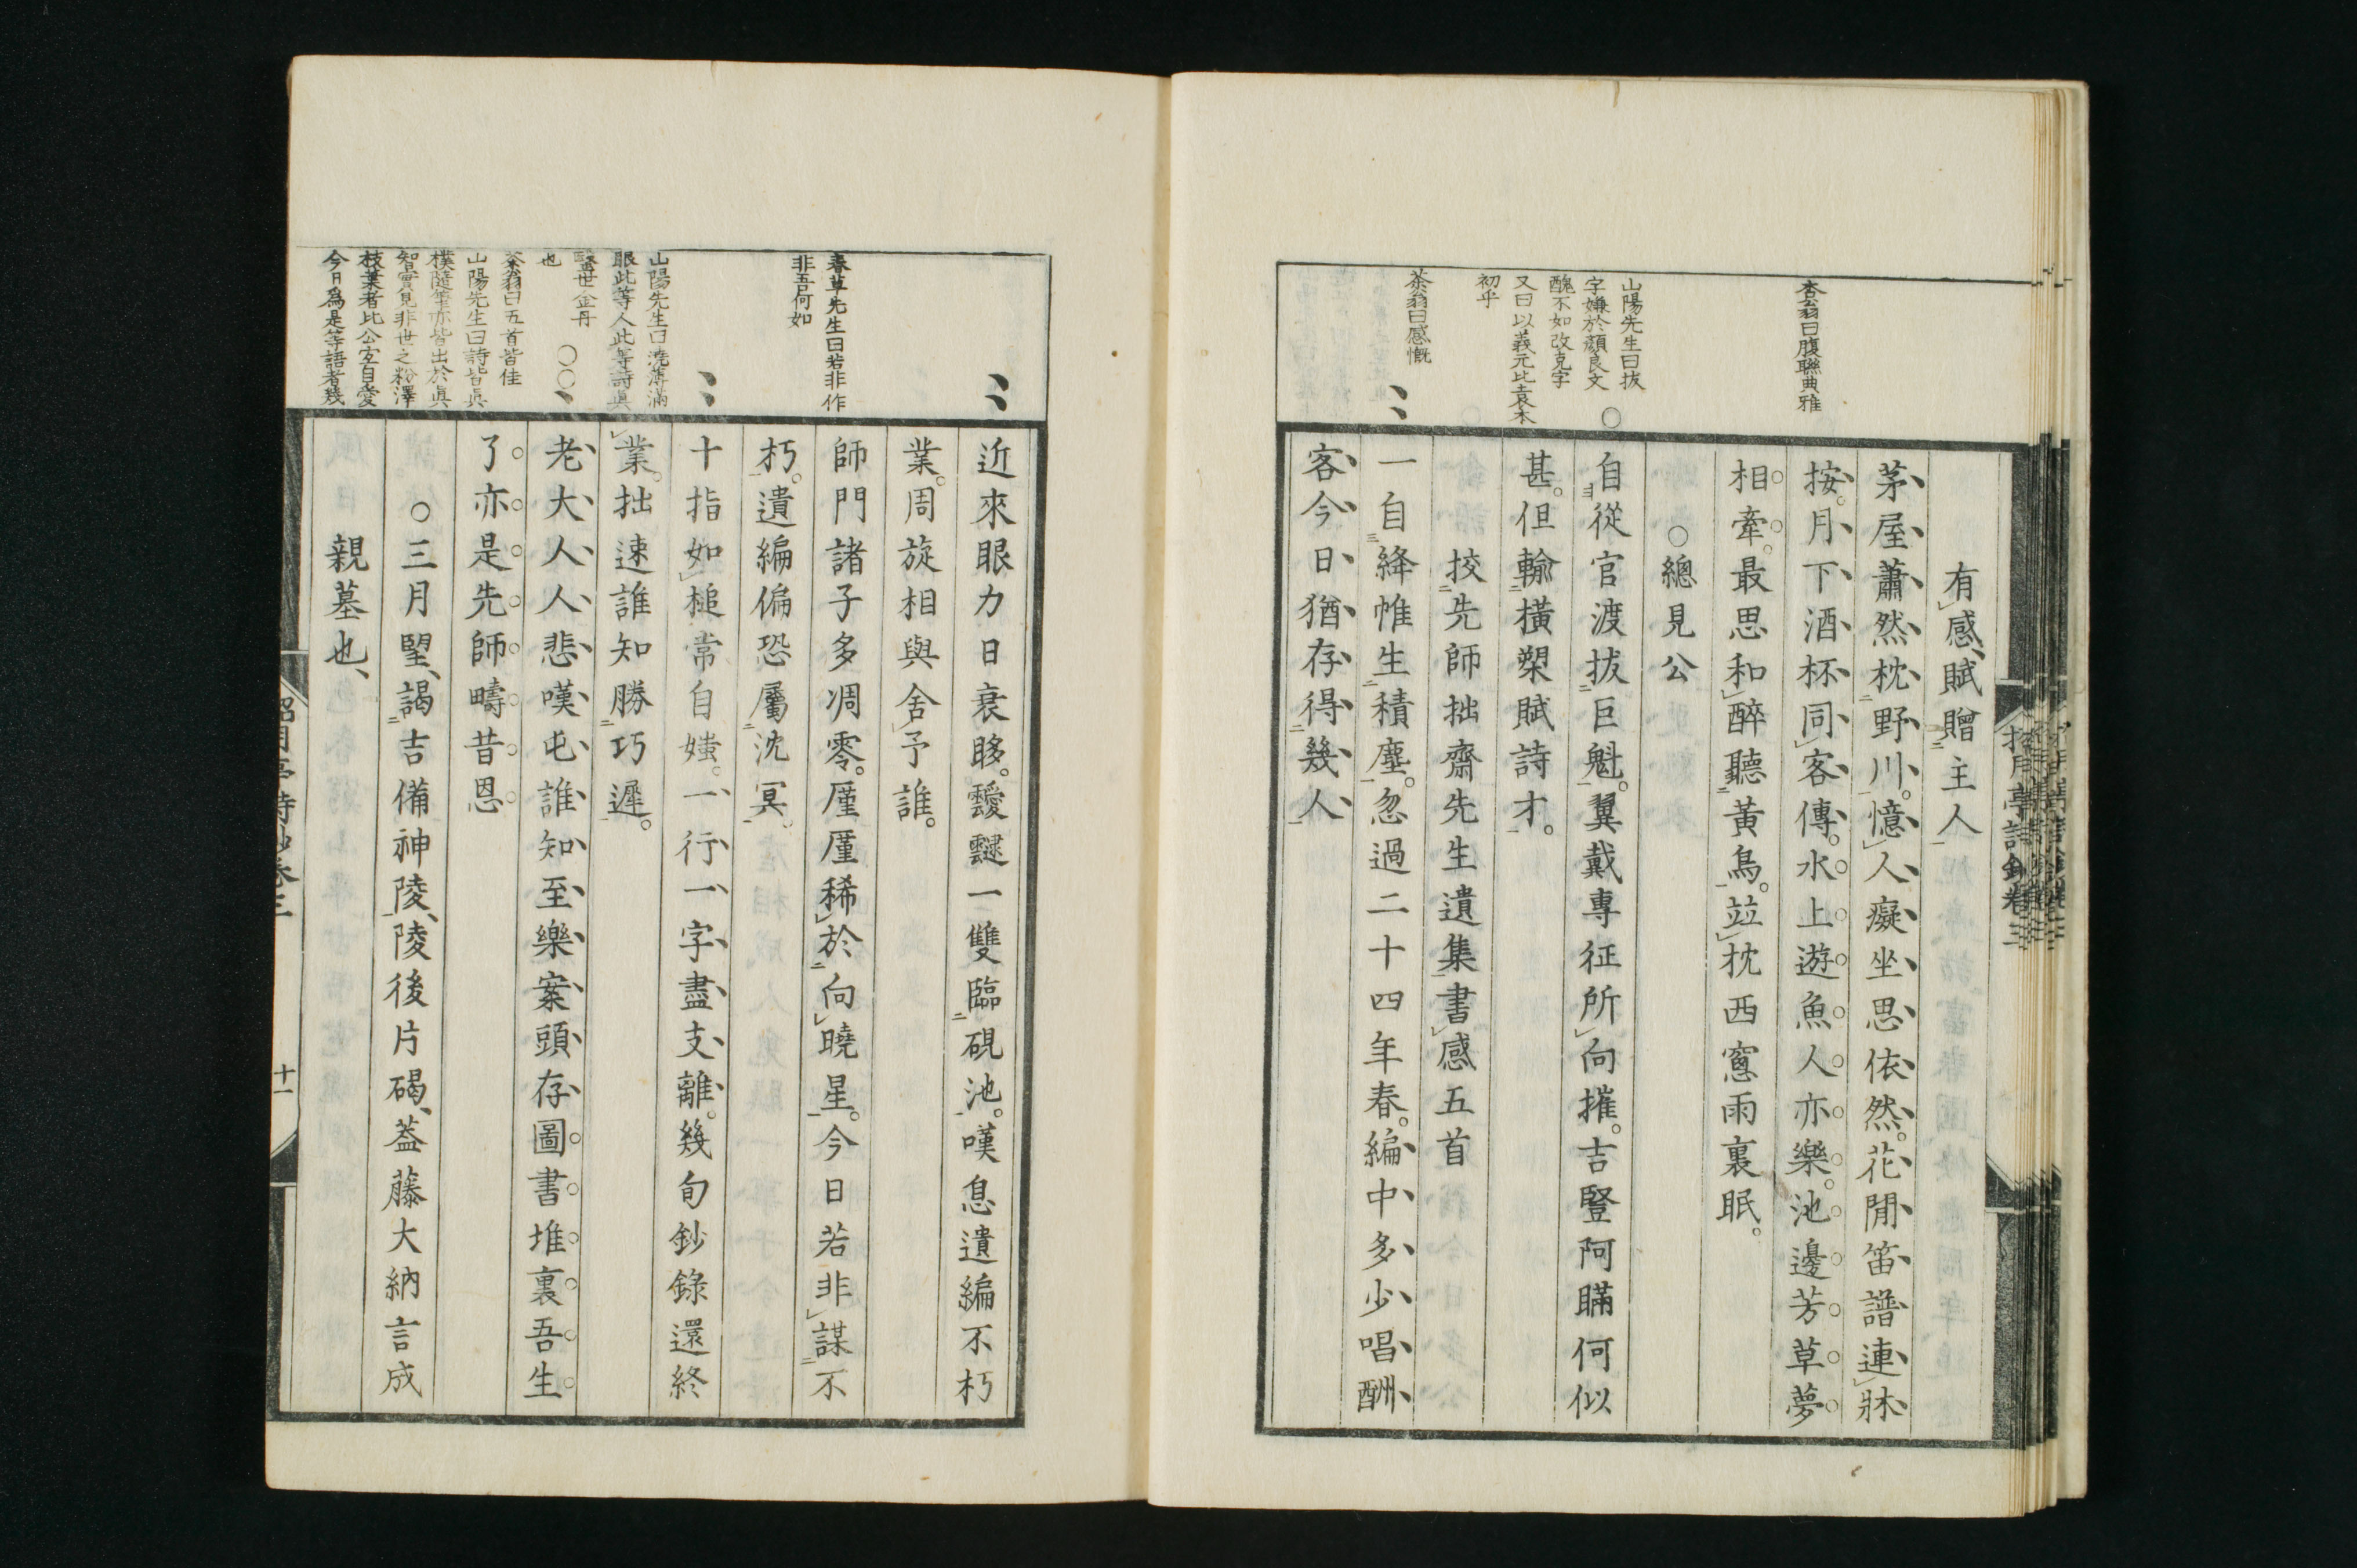 杏翁曰腹聯典雅
山陽先生曰拔
字嫌於顏良文
醜不如改克字
又曰以義元比袁本
初乎
茶翁曰感慨
有感、賦贈主人
茅屋蕭然枕野川。憶人癡坐思依然。花間笛譜連牀
按。月下酒杯同客傳。水上遊魚人亦樂。池邊芳草夢
相牽。最思和醉聽黃鳥。竝枕西窻雨裏眠。
○總見公
自從官渡拔巨魁。翼戴專征所向摧。吉豎阿瞞何似
甚。但輸橫槊賦詩才。
挍先師拙齋先生遺集書感五首
一自絳帷生積塵。忽過二十四年春。編中多少唱酬
客今日猶存得幾人
春草先生曰若非作
非吾何如
山陽先生曰澆薄滿
眼此等人此等詩眞
醫世金丹
也
茶翁曰五首皆佳
山陽先生曰詩皆眞
樸隨筆亦皆出於眞
智實見非世之粉澤
枝葉者比公宜自愛
今日爲是等語者幾
近來眼力日衰眵。靉靆一雙臨硯池。嘆息遺編不朽
業。周旋相與舍予誰。
師門諸子多凋零。厪厪稀於向曉星。今日若非謀不
朽。遺編偏恐屬沈冥。
十指如槌常自嗤。一行一字盡支離。幾旬鈔錄還終
業。拙速誰知勝巧遲。
老大人人悲嘆屯誰知至樂案頭存圖書堆裏吾生
了亦是先師疇昔恩
○三月望、謁吉備神陵、陵後片碣、蓋藤大納言成
親墓也、
十一